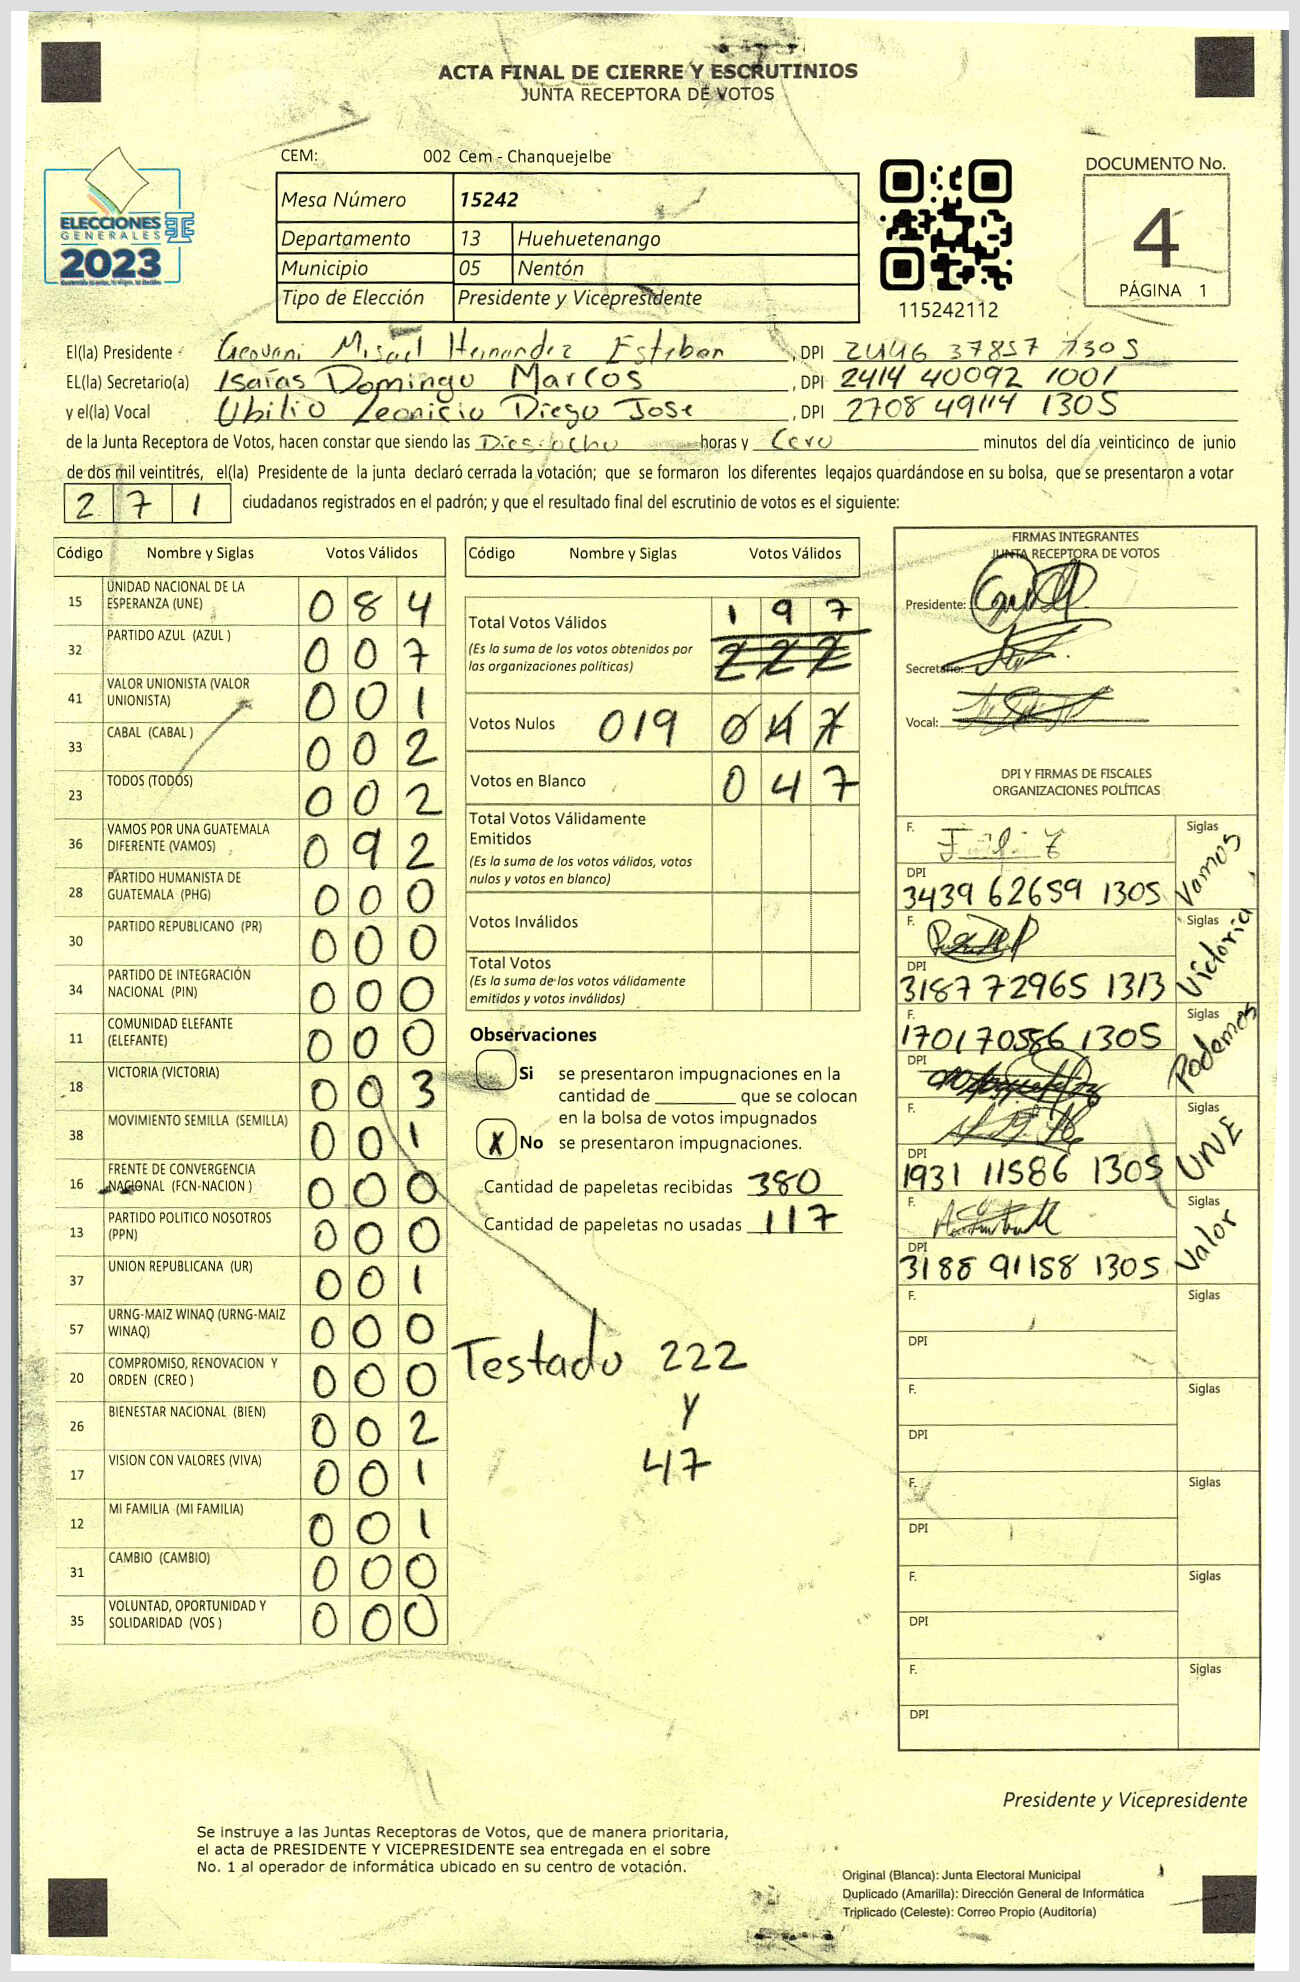 ACTA FINAL DE CIERRE Y ESCRUTINIOS
JUNTA RECEPTORA DE VOTOS
CEM: 002 Cem - Chanquejelbe
ELECCIONES
GENERALES
2023
Mesa Número 15242
Departamento 13 Huehuetenango
Municipio 05 Nentón
Tipo de Elección Presidente y Vicepresidente
115242112
DOCUMENTO No.
4
PÁGINA 1
El(la) Presidente Geovani Misael Hernandez Esteban , DPI 2446 37857 1305
EL(la) Secretario(a) Isaías Domingo Marcos , DPI 2414 40092 1001
y el(la) Vocal Ubilio Leonicio Diego Jose , DPI 2708 49114 1305
de la Junta Receptora de Votos, hacen constar que siendo las Diesiocho horas y Cero minutos del día veinticinco de junio
de dos mil veintitrés, el(la) Presidente de la junta declaró cerrada la votación; que se formaron los diferentes legajos quardándose en su bolsa, que se presentaron a votar
2 7 1 ciudadanos registrados en el padrón; y que el resultado final del escrutinio de votos es el siguiente:
Código Nombre y Siglas Votos Válidos
15 UNIDAD NACIONAL DE LA ESPERANZA (UNE) 0 8 4
32 PARTIDO AZUL (AZUL ) 0 0 7
41 VALOR UNIONISTA (VALOR UNIONISTA) 0 0 1
33 CABAL (CABAL ) 0 0 2
23 TODOS (TODOS) 0 0 2
36 VAMOS POR UNA GUATEMALA DIFERENTE (VAMOS) 0 9 2
28 PARTIDO HUMANISTA DE GUATEMALA (PHG) 0 0 0
30 PARTIDO REPUBLICANO (PR) 0 0 0
34 PARTIDO DE INTEGRACIÓN NACIONAL (PIN) 0 0 0
11 COMUNIDAD ELEFANTE (ELEFANTE) 0 0 0
18 VICTORIA (VICTORIA) 0 0 3
38 MOVIMIENTO SEMILLA (SEMILLA) 0 0 1
16 FRENTE DE CONVERGENCIA NACIONAL (FCN-NACION ) 0 0 0
13 PARTIDO POLITICO NOSOTROS (PPN) 0 0 0
37 UNION REPUBLICANA (UR) 0 0 1
57 URNG-MAIZ WINAQ (URNG-MAIZ WINAQ) 0 0 0
20 COMPROMISO, RENOVACION Y ORDEN (CREO ) 0 0 0
26 BIENESTAR NACIONAL (BIEN) 0 0 2
17 VISION CON VALORES (VIVA) 0 0 1
12 MI FAMILIA (MI FAMILIA) 0 0 1
31 CAMBIO (CAMBIO) 0 0 0
35 VOLUNTAD, OPORTUNIDAD Y SOLIDARIDAD (VOS ) 0 0 0
Código Nombre y Siglas Votos Válidos
Total Votos Válidos 1 9 7
(Es la suma de los votos obtenidos por
las organizaciones políticas) 2 2 2
Votos Nulos 019 0 4 7
Votos en Blanco 0 4 7
Total Votos Válidamente
Emitidos
(Es la suma de los votos válidos, votos
nulos y votos en blanco)
Votos Inválidos
Total Votos
(Es la suma de los votos válidamente
emitidos y votos inválidos)
Observaciones
Si se presentaron impugnaciones en la
cantidad de ________ que se colocan
en la bolsa de votos impugnados
X No se presentaron impugnaciones.
Cantidad de papeletas recibidas 380
Cantidad de papeletas no usadas 117
Testado 222
y
47
FIRMAS INTEGRANTES
JUNTA RECEPTORA DE VOTOS
Presidente:
Secretario:
Vocal:
DPI Y FIRMAS DE FISCALES
ORGANIZACIONES POLÍTICAS
F. Siglas Vamos
DPI 3439 62659 1305
F. Siglas Victoria
DPI 3187 72965 1313
F. 1701 70586 1305 Siglas Podemos
DPI
F. Siglas UNE
DPI 1931 11586 1305
F. Siglas Valor
DPI 3188 91158 1305
F. Siglas
DPI
F. Siglas
DPI
F. Siglas
DPI
F. Siglas
DPI
F. Siglas
DPI
Presidente y Vicepresidente
Se instruye a las Juntas Receptoras de Votos, que de manera prioritaria,
el acta de PRESIDENTE Y VICEPRESIDENTE sea entregada en el sobre
No. 1 al operador de informática ubicado en su centro de votación.
Original (Blanca): Junta Electoral Municipal
Duplicado (Amarilla): Dirección General de Informática
Triplicado (Celeste): Correo Propio (Auditoría)